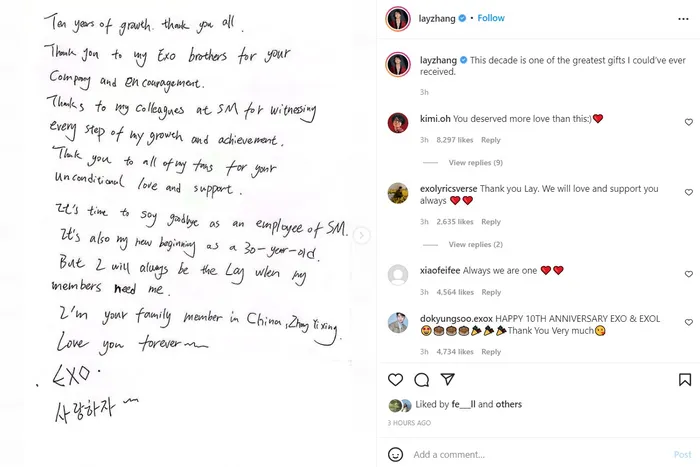 Ten years of growth. thank you all.
Thank you to my Exo brothers for your
Company and encouragement.
Thanks to my colleagues at SM for witnessing
every step of my growth and achievement.
Thank you to all of my fans for your
unconditional love and support.
It's time to say goodbye as an employee of SM.
It's also my new beginning as a 30-year-old.
But I will always be the Lay when my
members need me.
I'm your family member in China, Zhang Yixing.
Love you forever~
EXO.
사랑하자 ~
layzhang • Follow
layzhang This decade is one of the greatest gifts I could've ever
received.
3h
kimi.oh You deserved more love than this:)❤️
3h 8,297 likes Reply
View replies (9)
exolyricsverse Thank you Lay. We will love and support you
always ❤️❤️
3h 2,635 likes Reply
View replies (2)
xiaofeifee Always we are one ❤️❤️
3h 4,564 likes Reply
dokyungsoo.exox HAPPY 10TH ANNIVERSARY EXO & EXOL
Thank You Very much😘
3h 4,734 likes Reply
Liked by fe___ll and others
3 HOURS AGO
Add a comment...
Post